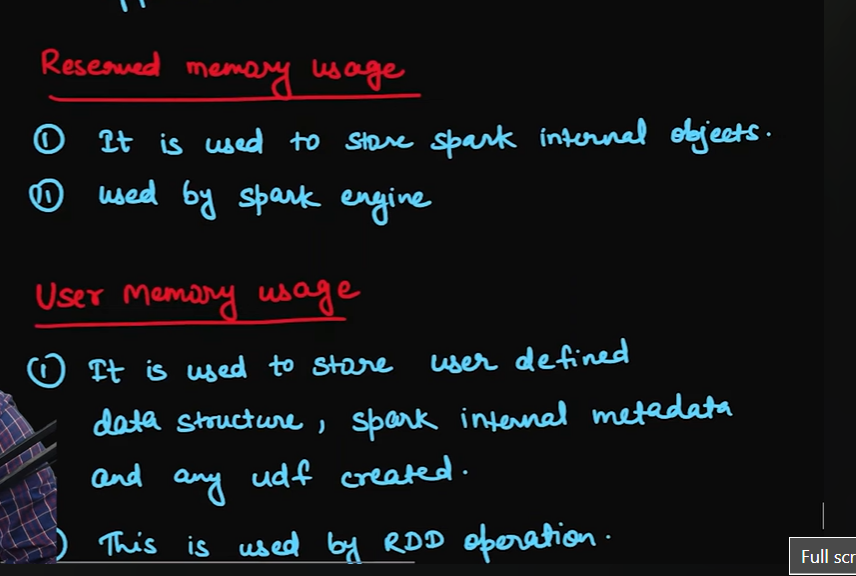 Reserved memory usage
(i) It is used to store spark internal objects.
(ii) used by spark engine
User Memory usage
(i) It is used to store user defined
data structure, spark internal metadata
and any udf created.
) This is used by RDD operation.
Full scr